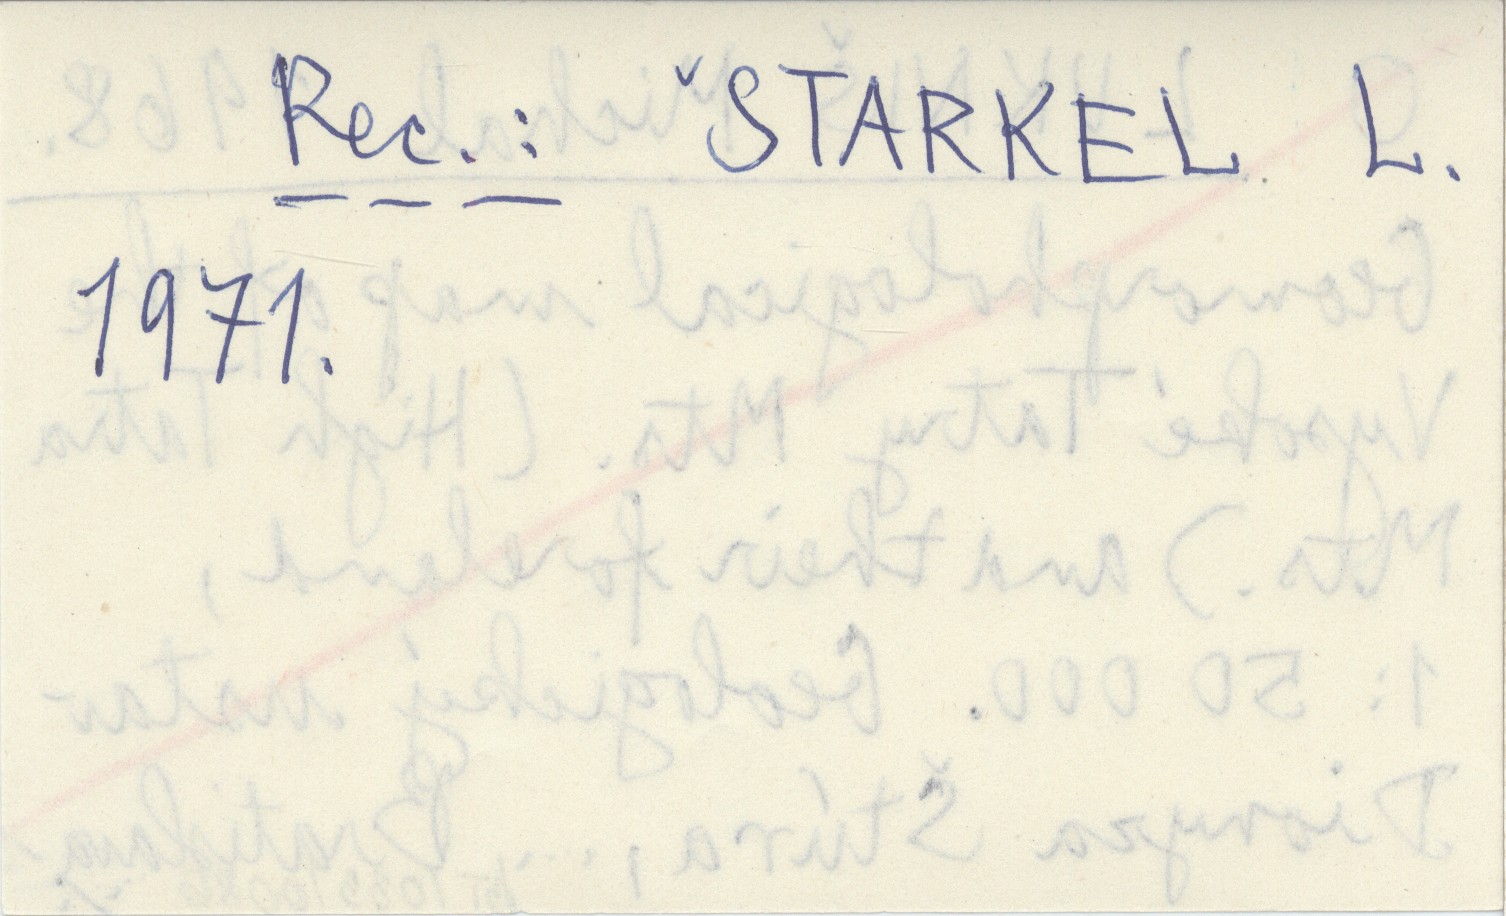 Rec.: ˇSTARKEL L.
1971.